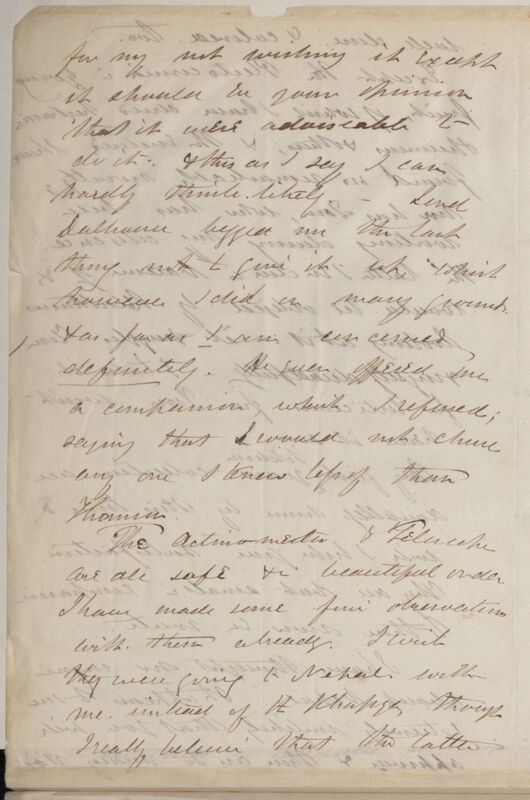 for my not wishing it except
it should be your opinion
that it were adviseable to
do it. & this as I say I can
hardly think likely — Lord
Dalhousie begged me the last
thing not to give it up which
however I did on many grounds
& as far as I am concerned
definitely. He even offered me
a companion, which I refused;
saying that I would not chuse
any one I knew less of than
Thomson
The Actinometer & Telescope
are all safe & in beautiful order
I have made some fine observations
with them already. I wish
they were going to Nepal with
me instead of though
I really believe that the latter